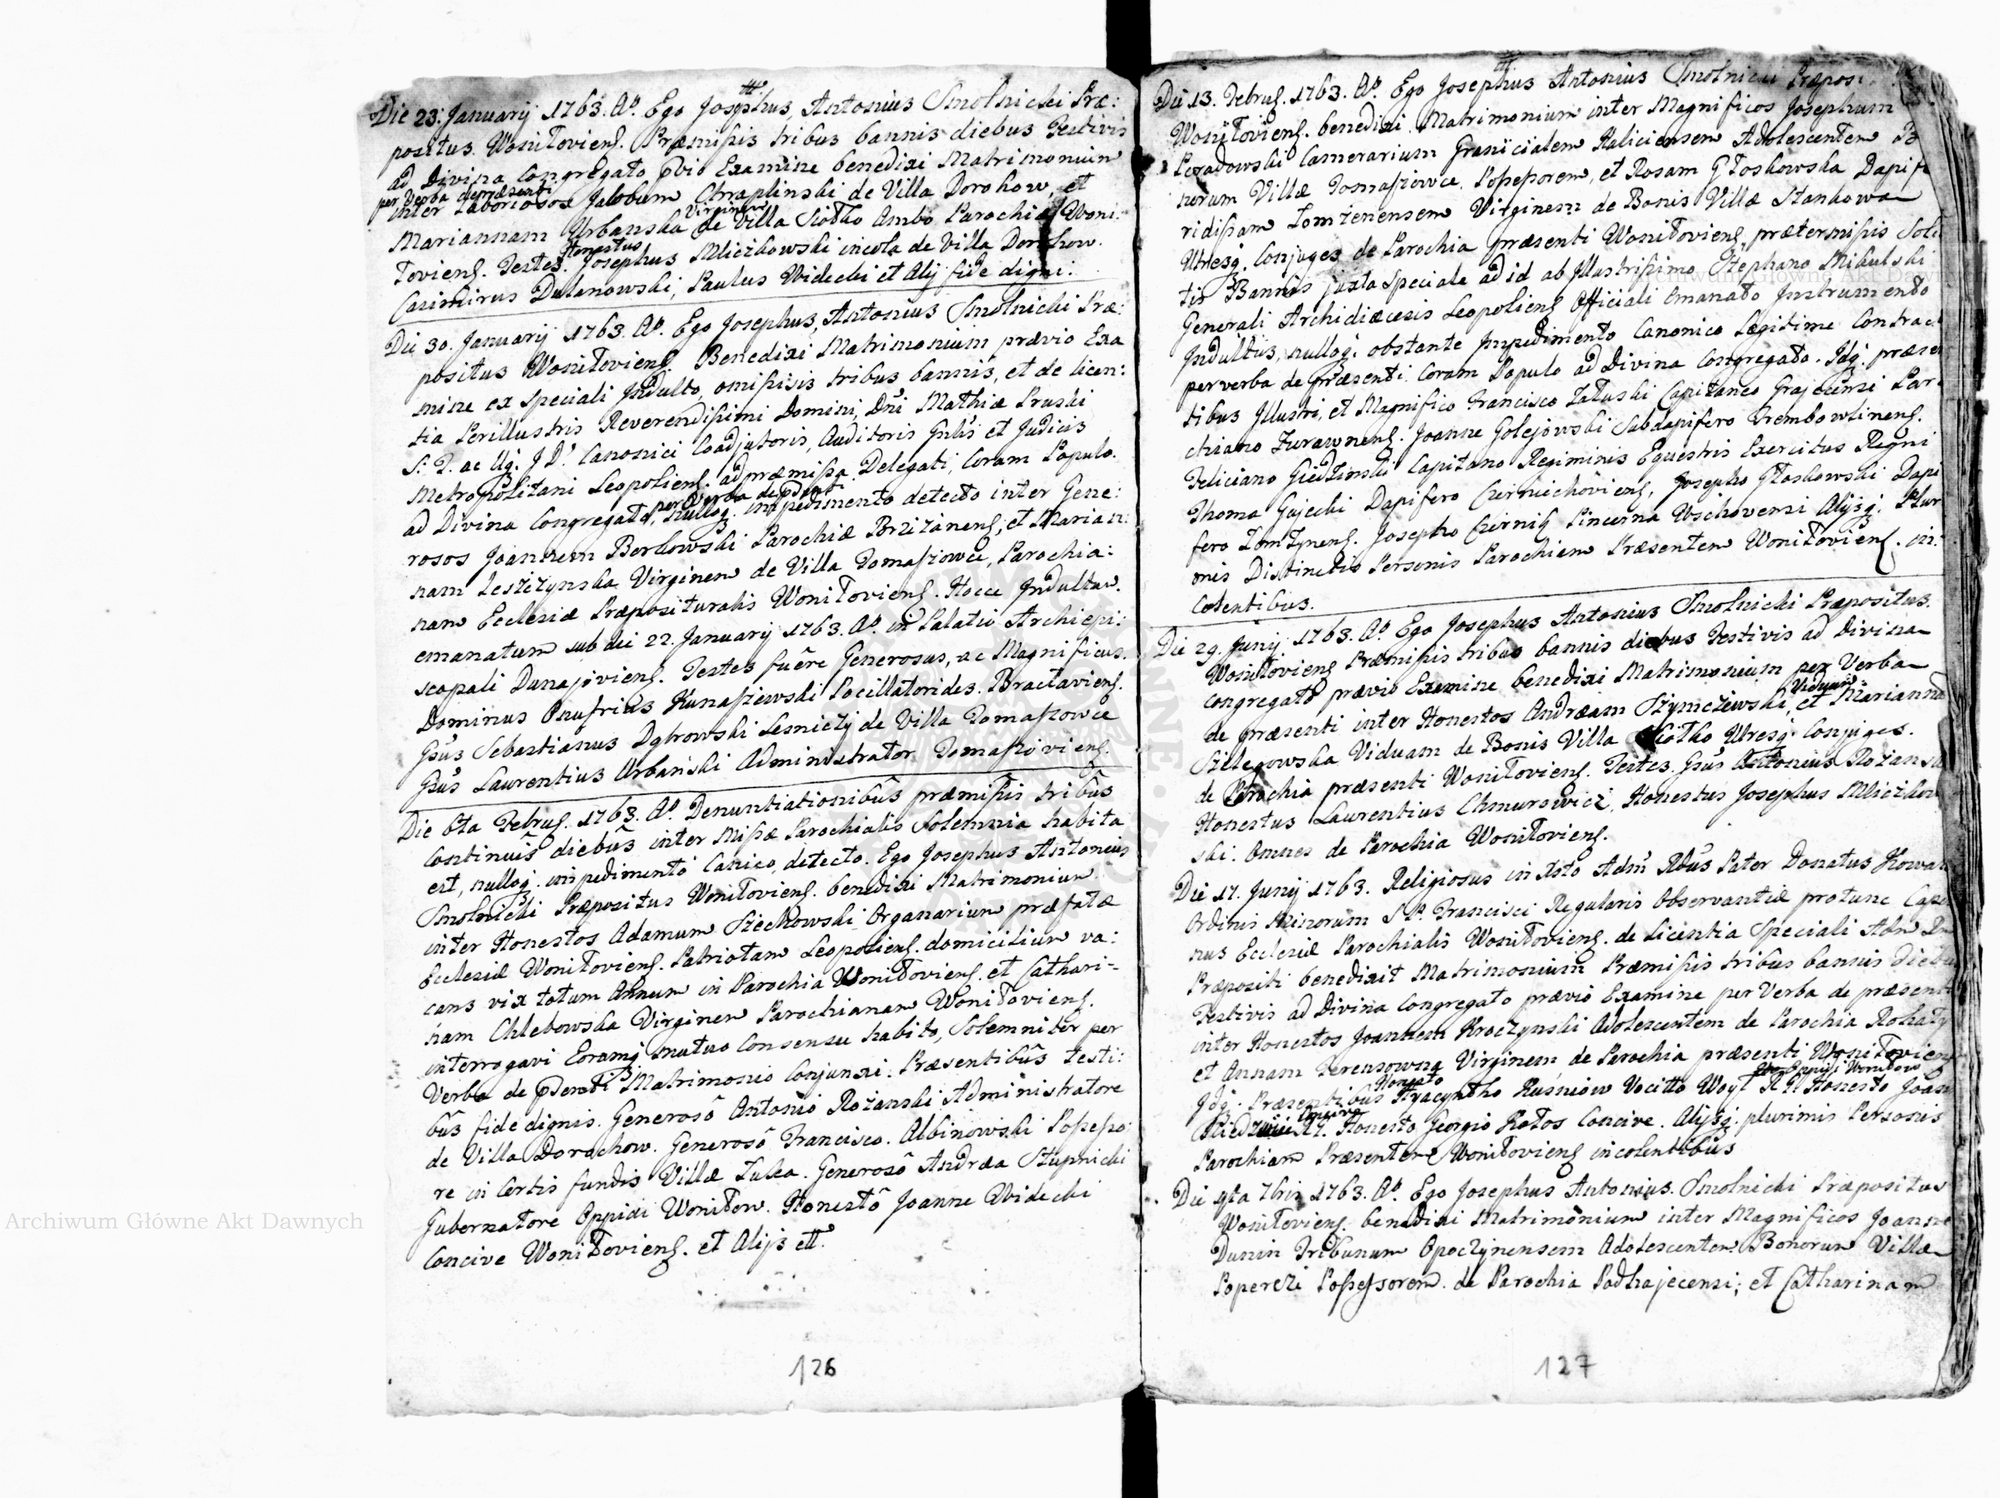 Die 23. Januarij 1763. Aº. Ego Josephus, Antonius Smolnicki Præ:
positus Woniłoviens. Præmissis tribus bannis diebus Festivis
ad Divina Congregato, pvio Examine benedixi Matrimonium
per Verba de præsenti
inter Laboriosos Jakobum Chraplinski de Villa Dorohow, et
Virginem
Mariannam Urbanska de Villa Siołko Ambo Parochiæ Woni:
Honestus
łoviens. Testes. Josephus Mliczkowski incola de Villa Dorohow.
Casimirus Dulanowski, Paulus Widecki et Alij fide digni.
Die 30. Januarij 1763. Aº. Ego Josephus, Antonius Smolnicki Præ:
positus Woniłoviens. Benedixi Matrimonium prævio Exa
mine ex speciali Indulto, omissis tribus bannis, et de licen:
tia Perillustris Reverendissimi Domini, Dni Mathiæ Pruski
S: T. ac Uj: J D: Canonici Coadjutoris, Auditoris Gnlis et Judicis
Metropolitani Leopoliens. ad præmissa Delegati, Coram Populo
per Verba de pSenti
ad Divina Congregato, nulloq. impedimento detecto inter Gene:
rosos Joannem Berkowski Parochiæ Brzizinens, et Marian:
nam Leszczynska Virginem de Villa Tomaszowce, Parochia:
nam Ecclesiæ Præposituralis Woniłoviens. Hocce Indultum
emanatum sub die 22. Januarij 1763. Aº. in Palatio Archiepi:
scopali Dunajoviens. Testes fuêre Generosus, ac Magnificus
Dominus Onufrius Kunaszewski Pocillatorides. Bracłaviens.
Gsus Sebastianus Dąbrowski Lesniczy de Villa Tomaszowce
Gsus Laurentius Urbański Administrator Tomaszoviens.
Die 6ta Februs. 1763. Aº. Denuntiationibûs præmissis tribûs
Continuis diebûs inter Missæ Parochialis Solemnia habita
est, nulloq. impedimento Canico, detecto. Ego Josephus Antonius
Smolnicki Præpositus Woniłoviens. benedixi Matrimonium
inter Honestos Adamum Szechowski Organarium præfatæ
Ecclesiæ Woniłoviens. Patriotam Leopoliens. domicilium va:
cans vix totum Annum in Parochia Woniłoviens. et Cathari-
nam Chlebowska Virginem Parochianam Woniłoviens.
interrogavi Eoramq mutuo Consensu habito, Solemniter per
Verba de pSenti Matrimonio Conjunxi. Præsentibûs testi:
bûs fide dignis. Generosô Antonio Rożanski Administratore
de Villa Dorochow. Generosô Francisco Albinowski Possesso:
re in Certis fundis Villæ Tulea. Generosô Andræa Stupnicki
Gubernatore Oppidi Woniłow. Honestô Joanne Widecki
Concive Woniłoviens. et Alijs ett.
126
Die 13. Februs. 1763. Aº. Ego Josephus Antonius Smolnicki Præposi
Woniłoviens. benedixi Matrimonium inter Magnificos Josephum
Camerarium Graniciałem Haliciensem Adolescentem
norum Villæ Tomaszowce, Possessorem, et Rosam Głoskowska Dapife
ridissam Łomżenensem Virginem de Bonis Villæ Stankowa
Utresq. Conjuges de Parochia præsenti Woniłoviens, prætermissis Soli
tis Bannis juxta speciale ad id ab Illustrissimo Stephano Mikulski
Generali Archidiæcesis Leopoliens Officiali emanato Instrumento
Indultus, nulloq. obstante Impedimento Canonico Legitime Contrac
per verba de Præsenti Coram Populo ad Divina Congregato. Idq. præsen
tibus Illustri, et Magnifico Francisco Załuski Capitaneo Grajecensi Par
chiano Żurawnens. Joanne Golejowski Subdapifero Trembowlinens.
Feliciano Giedzinski Capitano Regiminis Equestris Exercitus Regni
Thoma Gajecki Dapifero Czerniechoviens, Josepho Głoskowski Dapi
fero Łomżynens. Josepho Czernis Pincerna Wschovensi Alijsq. Plur
mis Distinctis Personis Parochiam Præsentem Woniłoviens. in:
Colentibus.
Die 29. Junij 1763. Aº. Ego Josephus Antonius Smolnicki Præpositus
Woniłoviens Præmissis tribus bannis diebus Festivis ad Divina
Congregato prævio Examine benedixi Matrimonium per Verba
Viduum
de præsenti inter Honestos Andræam Szymczewski, et Marianna
Viduam de Bonis Villa Siołko Utresq. Conjuges.
de Parochia præsenti Woniłoviens. Testes. Gsus Antonius Rożans
Honestus Laurentius Chmurowicz, Honestus Josephus Mliczkow
ski. Omnes de Parochia Woniłoviens.
Die 17. Junij 1763. Religiosus in Xsto Adm Rdus Pater Donatus Kowa
Ordinis Minorum S. P. Francisci Regularis Observantiæ protunc Cape
nus Ecclesiæ Parochialis Woniłoviens. de Licentia Speciali Adm
Præpositi benedixit Matrimonium Præmissis tribus bannis Diebu
Festivis ad Divina Congregato prævio Examine per Verba de præsenti
inter Honestos Joannem Kroczynski Adolescentem de Parochia Rohaty
et Annam Virginem de Parochia præsenti Woniłoviens
Idq. Præsentibus Hyacyntho Kuśniow Vocitto Woyt Honesto Joan
Honesto Georgio Kotos Concive. Alijsq. plurimis Personis
Parochiam Præsentem Woniłoviens incolentibus
Die 9ta 7bris 1763. Aº. Ego Josephus Antonius Smolnicki Præpositus
Woniłoviens. benedixi Matrimonium inter Magnificos Joanne
Dunin Tribunum Opoczynensem Adolescentem Bonorum Villæ
Possessorem. de Parochia Podhajecensi; et Catharinam
127
Archiwum Główne Akt Dawnych